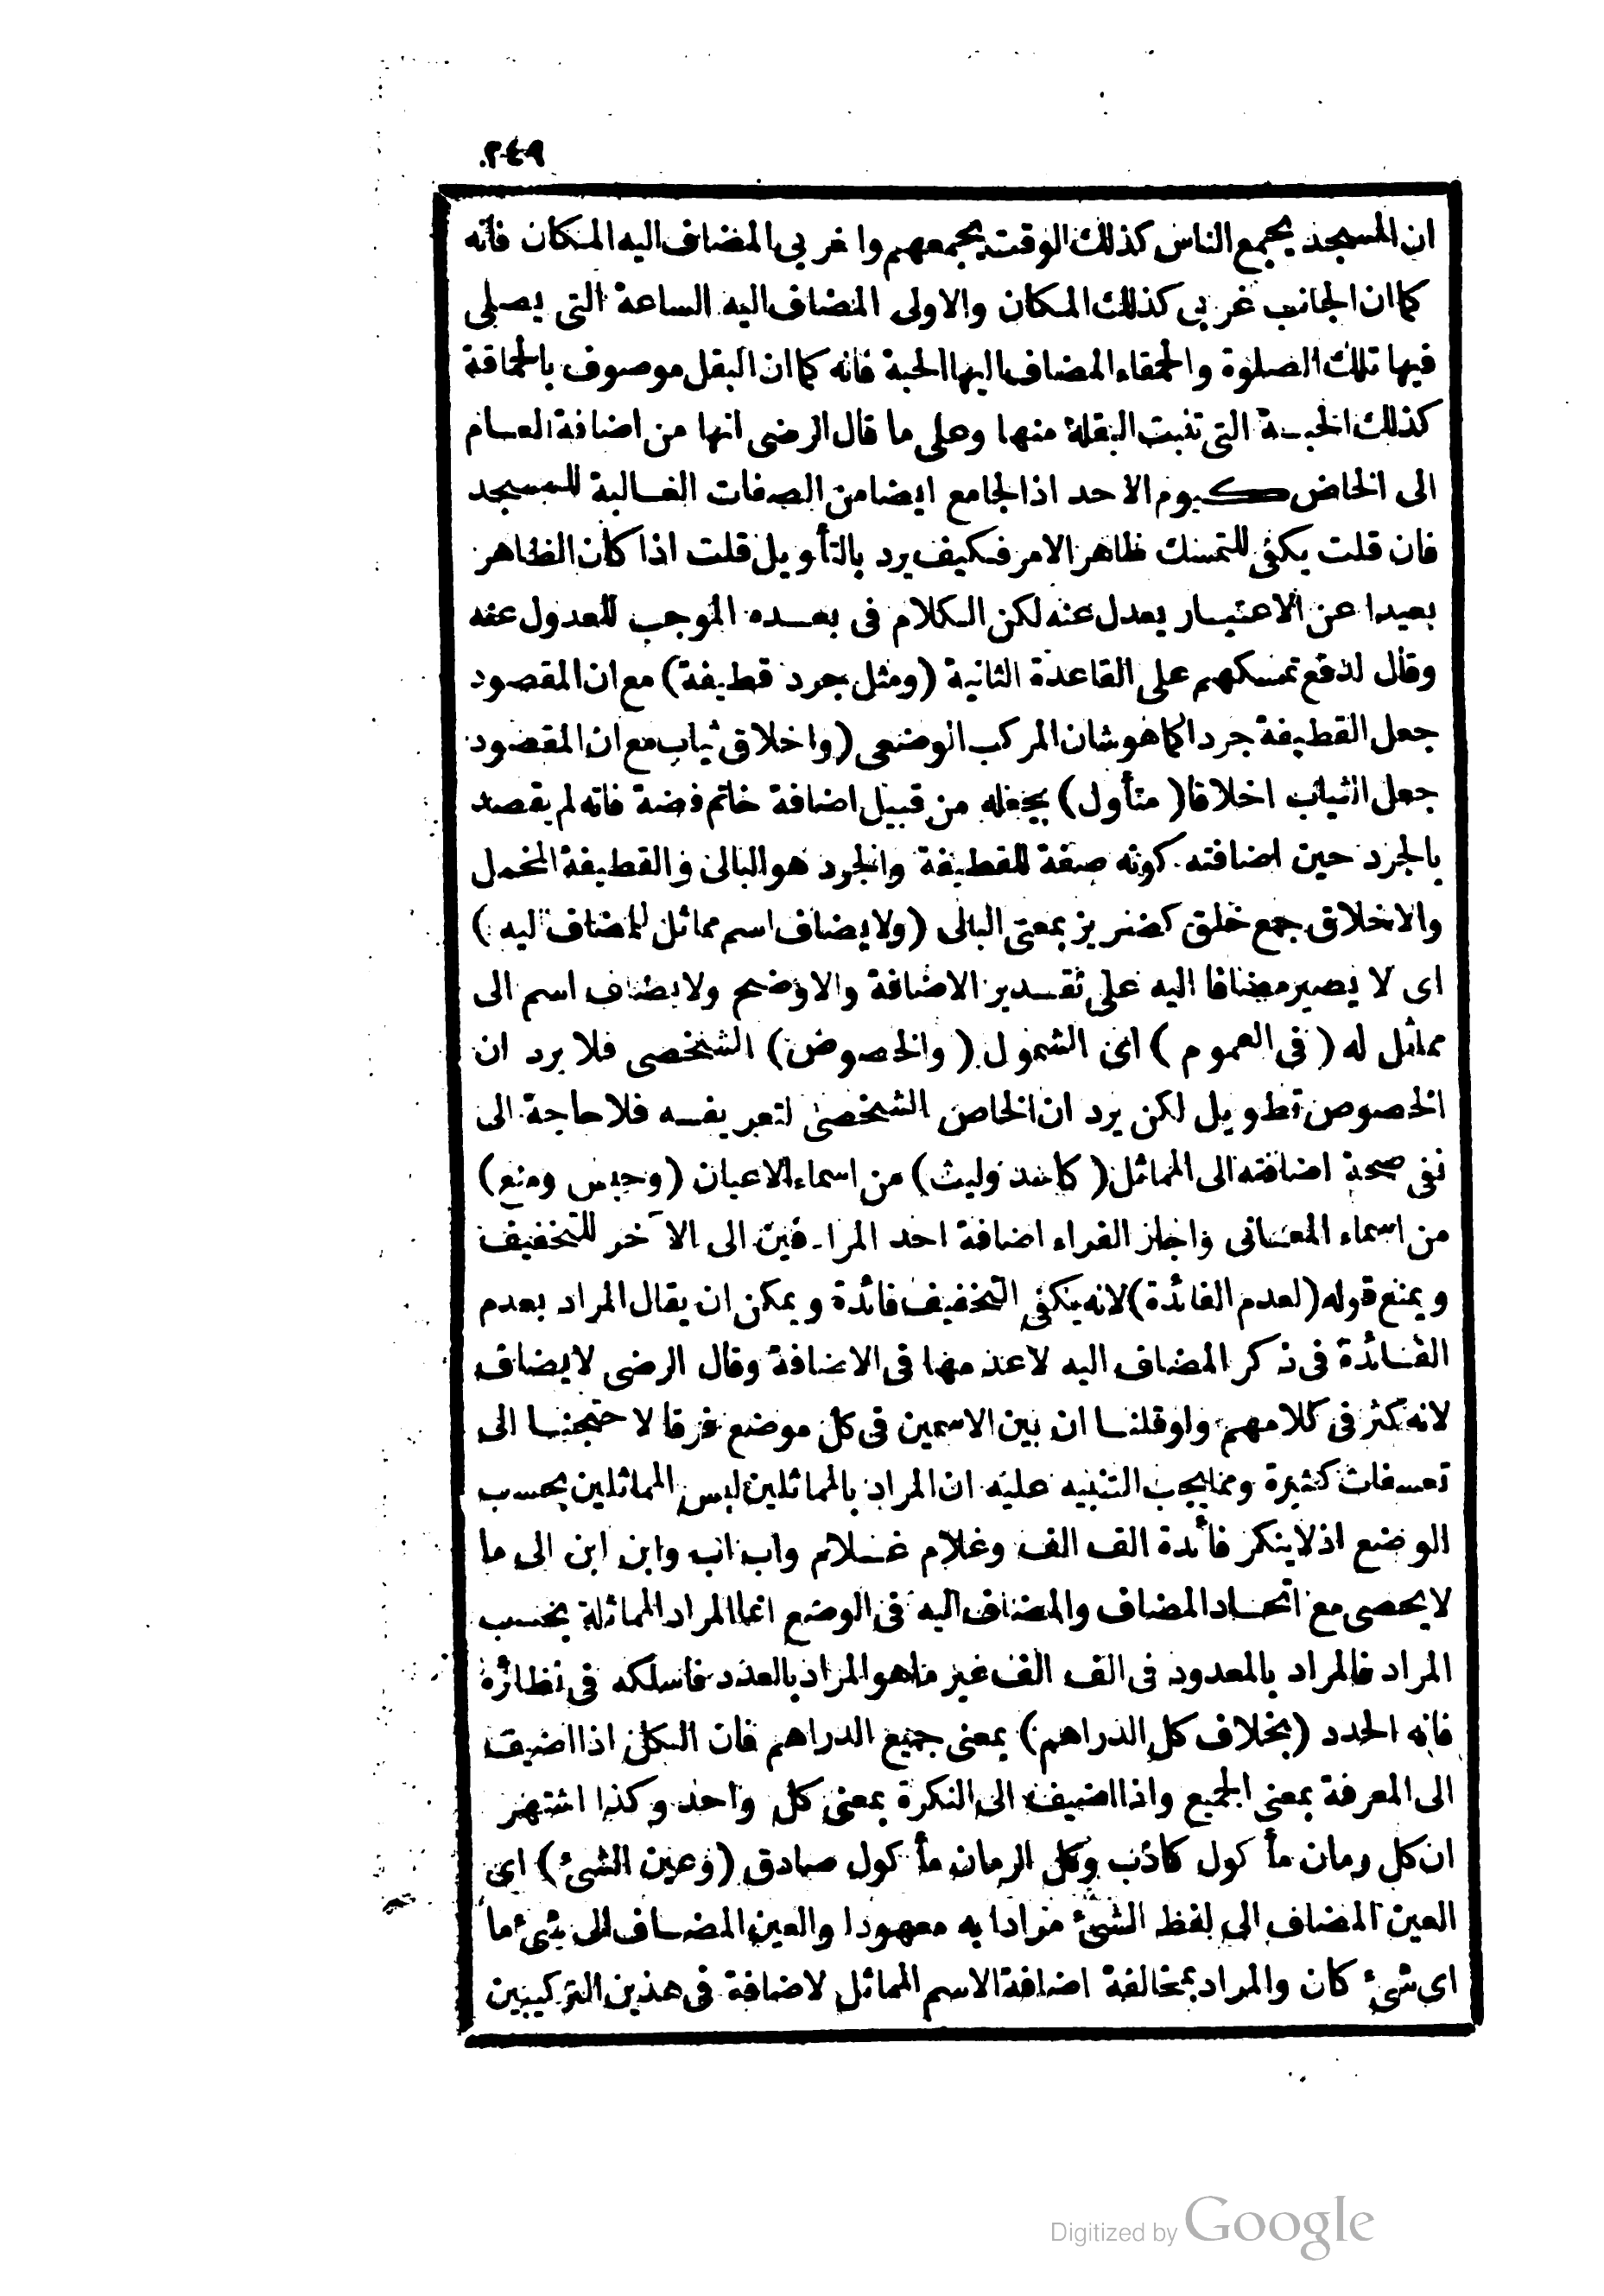 ٢٤٩
ان المسجد يجمع الناس كذلك الوقت يجمعهم والغربى المضاف اليه المكان فانه
كما ان الجانب غربى كذلك المكان والاولى المضاف اليه الساعة التى يصلى
فيها تلك الصلوة والحمقاء المضاف اليها الحبة فانه كما ان البقل موصوف بالحماقة
كذلك الحبة التى تنبت البقلة منها وعلى ما قال الرضى انها من اضافة العام
الى الخاص كيوم الاحد اذ الجامع ايضا من الصفات الغالبة للمسجد
فان قلت يكفى للتمسك ظاهر الامر فكيف يرد بالتأويل قلت اذا كان الظاهر
بعيدا عن الاعتبار يعدل عنه لكن الكلام فى بعده الموجب للعدول عنه
وقال لدفع تمسكهم على القاعدة الثانية (ومثل جرد قطيفة) مع ان المقصود
جعل القطيفة جردا كما هو شان المركب الوصفى (واخلاق ثياب مع ان المقصود
جعل الثياب اخلاقا (متأول) بجعله من قبيل اضافة خاتم فضة فانه لم يقصد
بالجرد حين اضافته كونه صفة للقطيفة والجرد هو البالى والقطيفة المخمل
والاخلاق جمع خلق كضرير بمعنى البالى (ولا يضاف اسم مماثل للمضاف اليه)
اى لا يصير مضافا اليه على تقدير الاضافة والاوضح ولا يضاف اسم الى
مماثل له (فى العموم) اى الشمول (والخصوص) الشخصى فلا يرد ان
الخصوص تطويل لكن يرد ان الخاص الشخصى لتعريفه فلا حاجة الى
نفى صحة اضافته الى المماثل (كاسد وليث) من اسماء الاعيان (وحبس ومنع)
من اسماء المعانى واجاز الفراء اضافة احد المرادفين الى الآخر للتخفيف
ويمنع قوله (لعدم الفائدة) لانه يكفى التخفيف فائدة ويمكن ان يقال المراد بعدم
الفائدة فى ذكر المضاف اليه لاعدمها فى الاضافة وقال الرضى لا يضاف
لانه كثر فى كلامهم ولو قلنا ان بين الاسمين فى كل موضع فرقا لاحتجنا الى
تعسفات كثيرة ومما يجب التنبيه عليه ان المراد بالمماثلين ليس المماثلين بحسب
الوضع اذ لا ينكر فائدة الف الف وغلام غلام واب اب وابن ابن الى ما
لا يحصى مع اتحاد المضاف والمضاف اليه فى الوضع انما المراد المماثلة بحسب
المراد فالمراد بالمعدود فى الف الف غير ما هو المراد بالعدد فاسلكه فى نظائره
فانه الجدد (بخلاف كل الدراهم) بمعنى جميع الدراهم فان الكل اذا اضيف
الى المعرفة بمعنى الجميع واذا اضيف الى النكرة بمعنى كل واحد وكذا اشتهر
ان كل رمان مأكول كاذب وكل الرمان مأكول صادق (وعين الشئ) اى
العين المضاف الى لفظ الشئ مرادا به معهودا والعين المضاف الى شئ ما
اى شئ كان والمراد بمخالفة اضافة الاسم المماثل لاضافة فى هذين التركيبين
Digitized by Google